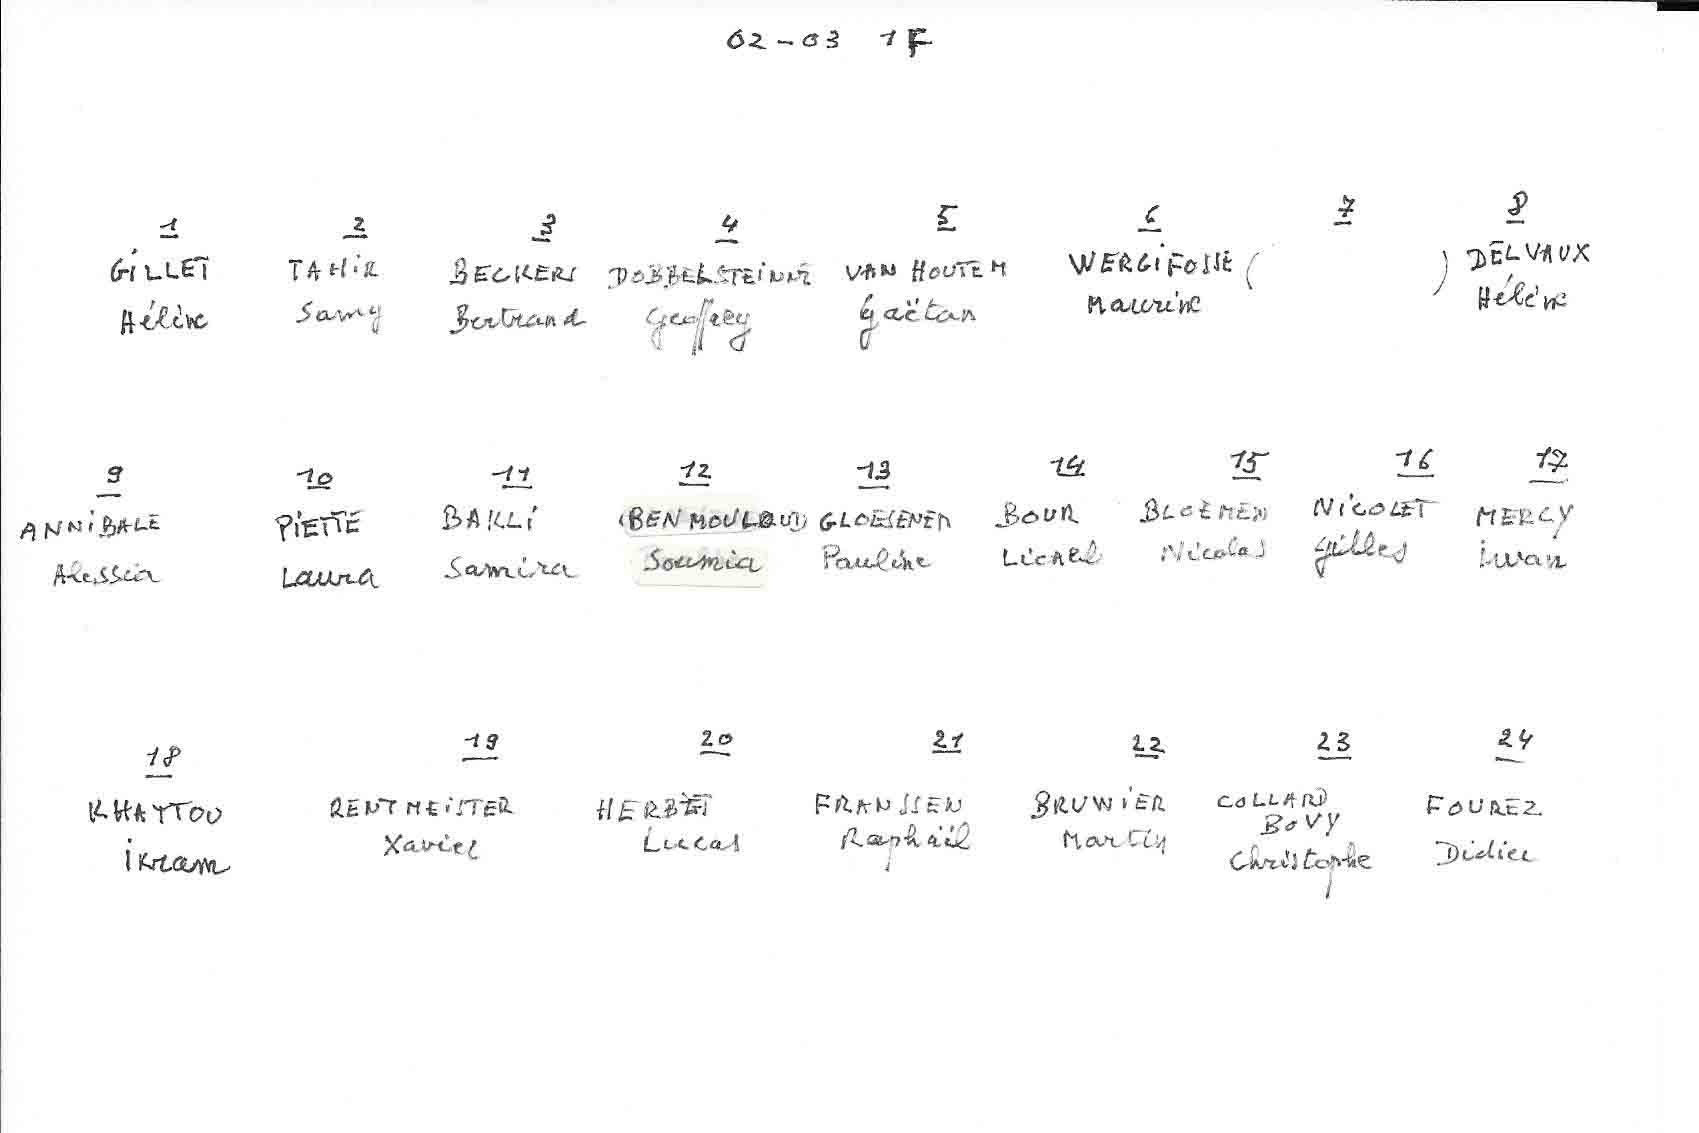 02-03 1F
1 2 3 4 5 6 7 8
GILLET TAHIR BECKERS DOBBELSTEINNE VAN HOUTEM WERGIFOSSE ( ) DELVAUX
Hélène Samy Bertrand Geoffrey Gaëtan Maurine Hélène
9 10 11 12 13 14 15 16 17
ANNIBALE PIETTE BAKLI (BEN MOULOUD) GLOESENER BOUR BLOEMEN NICOLET MERCY
Alessia Laura Samira Soumia Pauline Lionel Nicolas Gilles iwan
18 19 20 21 22 23 24
KHATTOU RENTMEISTER HERBET FRANSSEN BRUWIER COLLARD FOUREZ
BOVY
ikram Xavier Luccas Raphaël Martin Christophe Didier